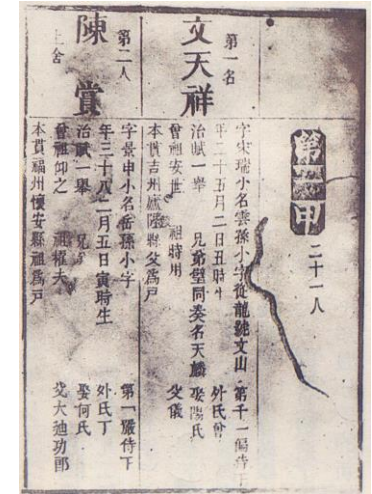 第一甲 二十一人
第一名
文天祥
字宋瑞小名雲孫小字從龍號文山 第千一偏侍下
年二十五月二日丑時生 外氏曾
治賦一舉 兄弟璧同奏名天麟 娶陽氏
曾祖安世 祖時用 父儀
本貫吉州廬陵縣父爲戶
第二人 上舍
陳賞
字景申小名岳孫小字 第一嚴侍下
年三十八二月五日寅時生 外氏丁
治賦一舉 兄 娶何氏
曾祖仰之 祖權夫 父大迪功郎
本貫福州懷安縣祖爲戶